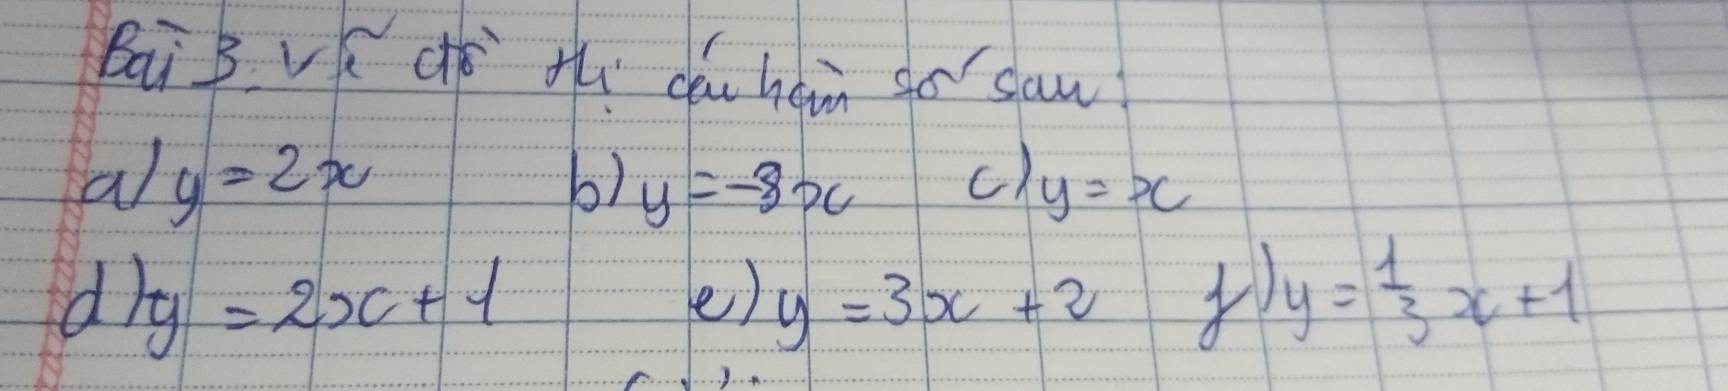 Bài 3. Vẽ đồ thị các hàm số sau:
a) y = 2x b) y = -3x c) y = x
d) y = 2x + 1 e) y = 3x + 2 f) y = \frac{1}{3}x + 1